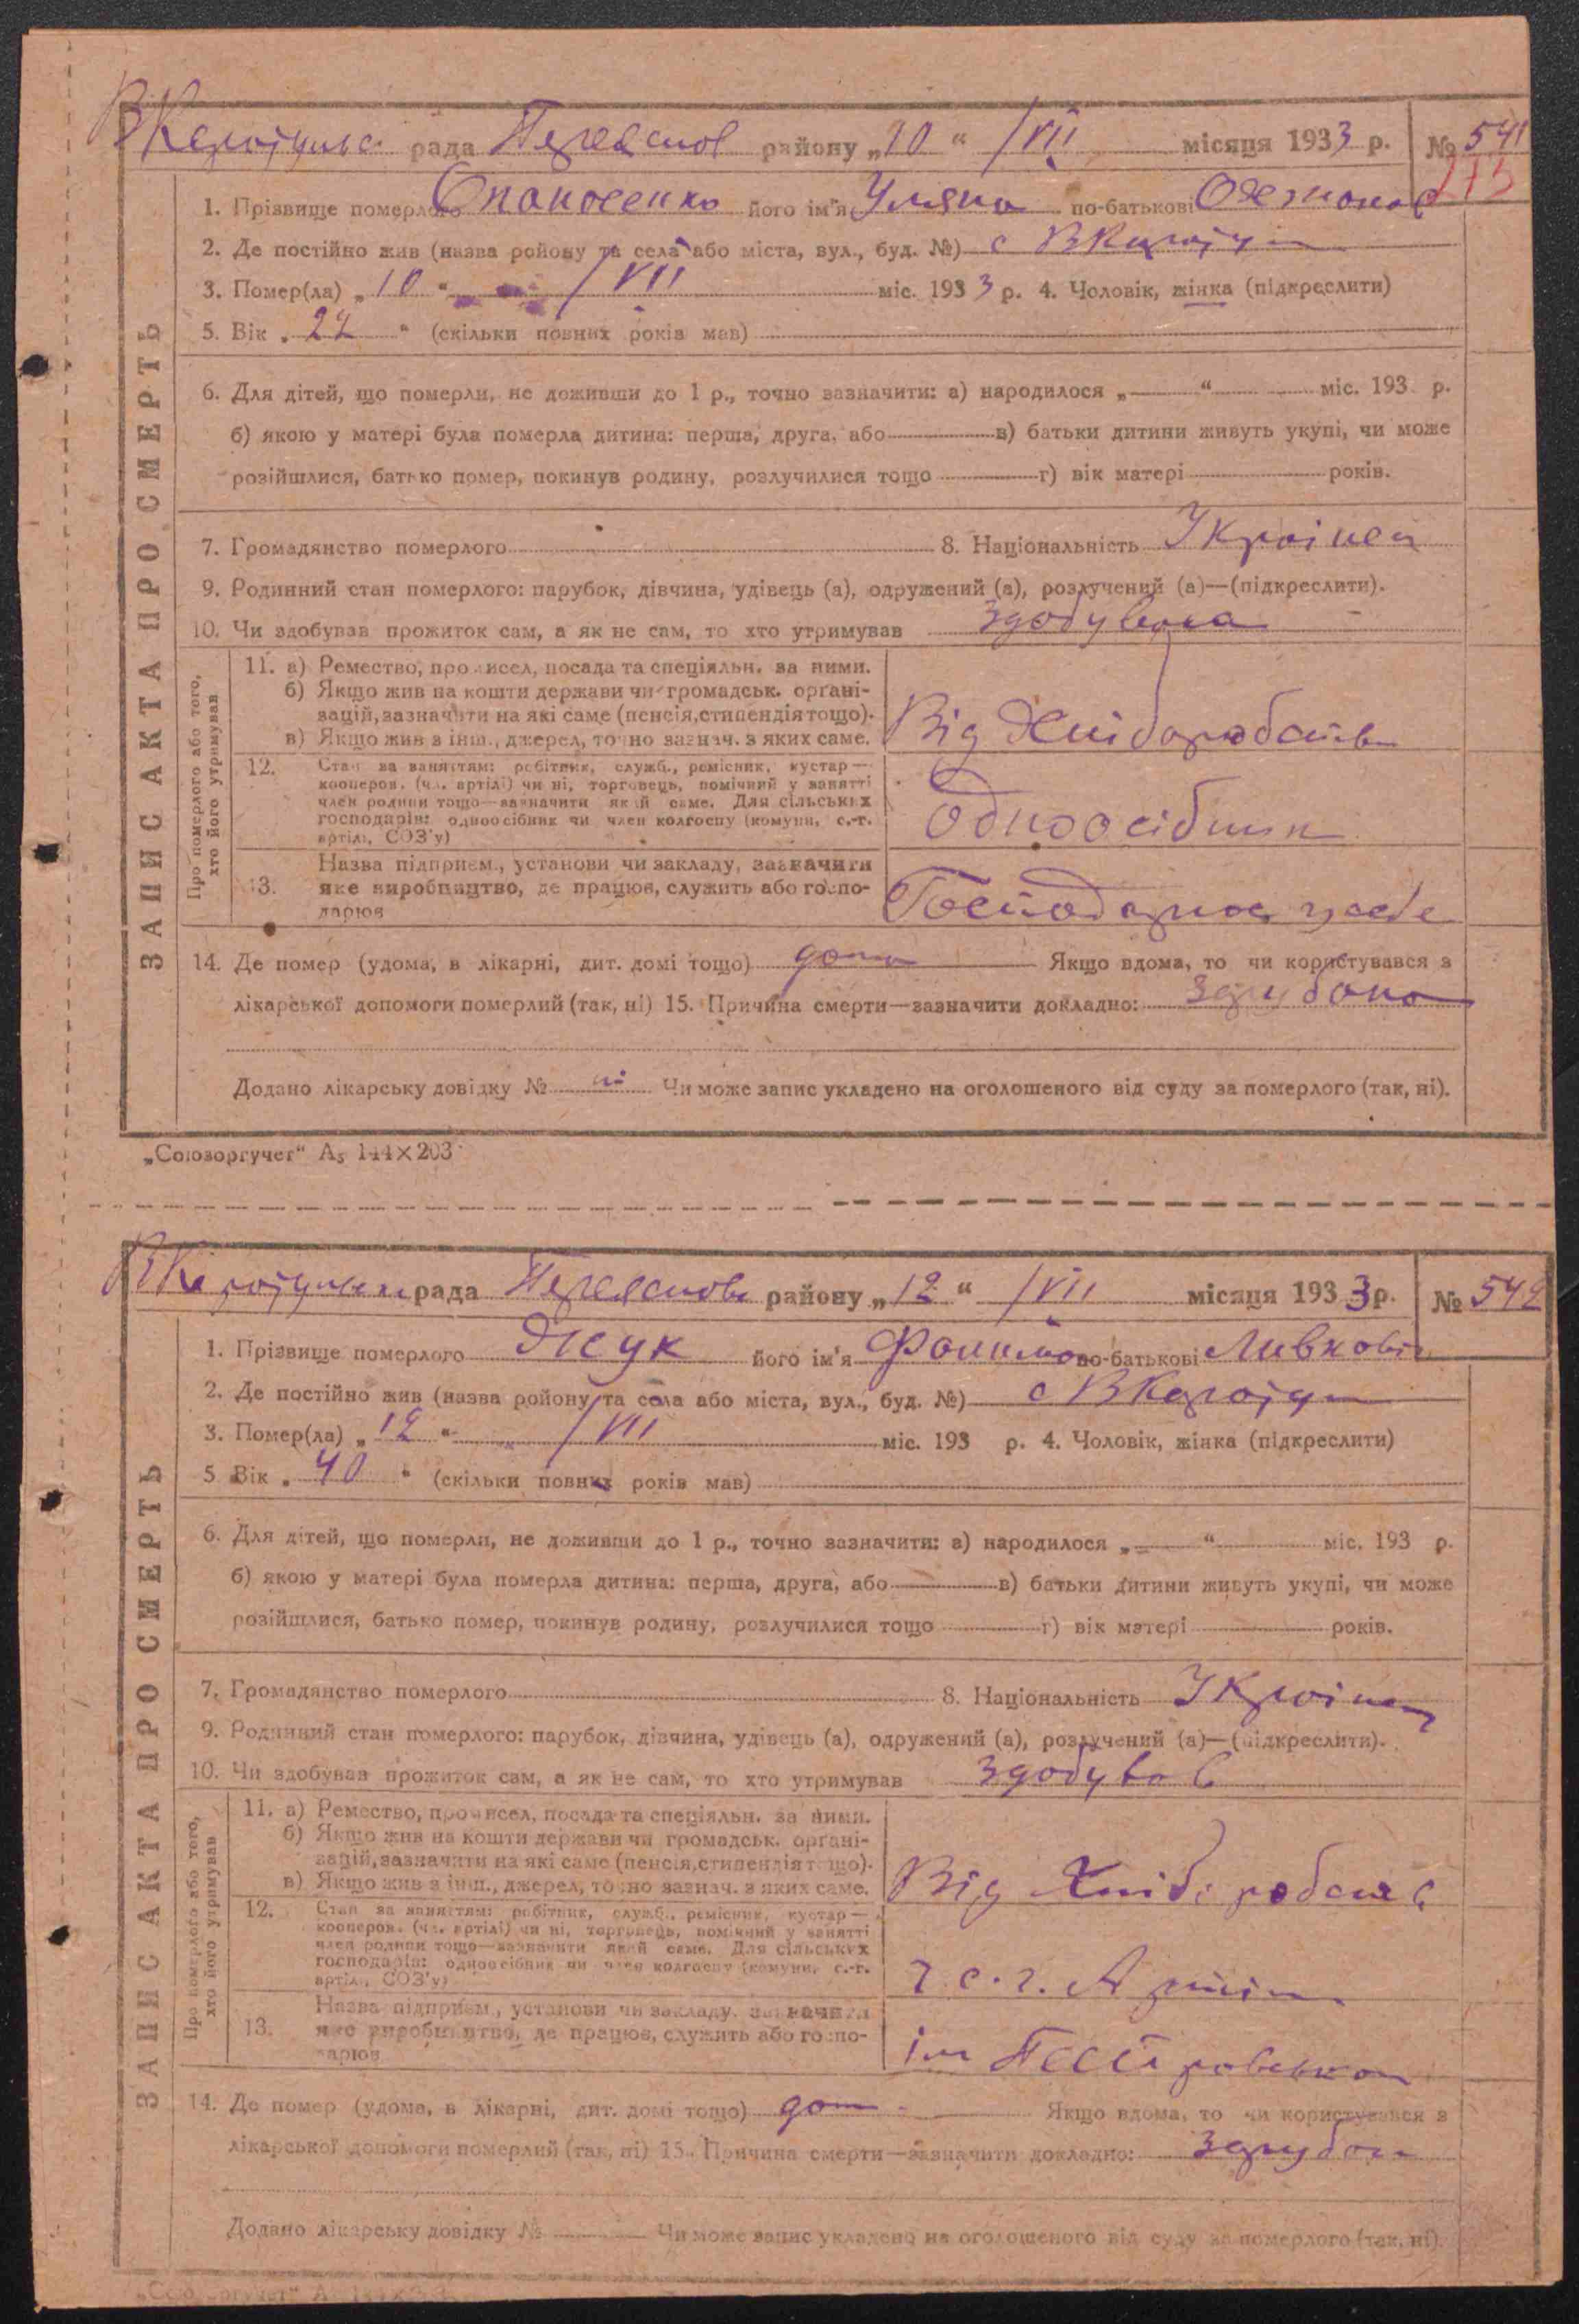 В Каратульс рада Переяслов району „10“ /VII місяця 1933 р. № 541
1. Прізвище померлого Опанасенко його ім'я Уляна по-батькові
2. Де постійно жив (назва ройону та села або міста, вул., буд. №) с В Каратул
3. Помер(ла) „10“ /VII міс. 1933 р. 4. Чоловік, жінка (підкреслити)
5. Вік „ “ (скільки повних років мав)
6. Для дітей, що померли, не доживши до 1 р., точно зазначити: а) народилося „ “ міс. 193 р.
б) якою у матері була померла дитина: перша, друга, або в) батьки дитини живуть укупі, чи може
розійшлися, батько помер, покинув родину, розлучилися тощо г) вік матері років.
7. Громадянство померлого 8. Національність Українец
9. Родинний стан померлого: парубок, дівчина, удівець (а), одружений (а), розлучений (а)—(підкреслити).
10. Чи здобував прожиток сам, а як не сам, то хто утримував здобувала
ЗАПИС АКТА ПРО СМЕРТЬ
Про померлого або того, хто його утримував
11. а) Ремество, промисел, посада та спеціяльн. за ними.
б) Якщо жив на кошти держави чи громадськ. орґані-
зацій, зазначити на які саме (пенсія, стипендія тощо).
в) Якщо жив з інш., джерел, точно зазнач. з яких саме.
Від
12. Стан за заняттям: робітник, служб., ремісник, кустар—
кооперов. (чл. артілі) чи ні, торговець, помічний у занятті
член родини тощо—зазначити який саме. Для сільських
господарів: одноосібник чи член колгоспу (комуни, с.-г.
артілі, СОЗ'у)
Одноосібник
13. Назва підприєм., установи чи закладу, зазначити
яке виробництво, де працюв, служить або госпо-
дарюв
14. Де помер (удома, в лікарні, дит. домі тощо) дома Якщо вдома, то чи користувався з
лікарської допомоги померлий (так, ні) 15. Причина смерти—зазначити докладно:
Додано лікарську довідку № ні Чи може запис укладено на оголошеного від суду за померлого (так, ні).
„Союзоргучет“ А5 144×203
рада Переяслов району „12“ /VII місяця 1933 р. № 542
1. Прізвище померлого Жук його ім'я по-батькові
2. Де постійно жив (назва ройону та села або міста, вул., буд. №) с В Каратул
3. Помер(ла) „12“ /VII міс. 193 р. 4. Чоловік, жінка (підкреслити)
5. Вік „40“ (скільки повних років мав)
6. Для дітей, що померли, не доживши до 1 р., точно зазначити: а) народилося „ “ міс. 193 р.
б) якою у матері була померла дитина: перша, друга, або в) батьки дитини живуть укупі, чи може
розійшлися, батько помер, покинув родину, розлучилися тощо г) вік матері років.
7. Громадянство померлого 8. Національність Українец
9. Родинний стан померлого: парубок, дівчина, удівець (а), одружений (а), розлучений (а)—(підкреслити).
10. Чи здобував прожиток сам, а як не сам, то хто утримував здобував
ЗАПИС АКТА ПРО СМЕРТЬ
Про померлого або того, хто його утримував
11. а) Ремество, промисел, посада та спеціяльн. за ними.
б) Якщо жив на кошти держави чи громадськ. орґані-
зацій, зазначити на які саме (пенсія, стипендія тощо).
в) Якщо жив з інш., джерел, точно зазнач. з яких саме.
Від
12. Стан за заняттям: робітник, служб., ремісник, кустар—
кооперов. (чл. артілі) чи ні, торговець, помічний у занятті
член родини тощо—зазначити який саме. Для сільських
господарів: одноосібник чи член колгоспу (комуни, с.-г.
артілі, СОЗ'у)
13. Назва підприєм., установи чи закладу, зазначити
яке виробництво, де працюв, служить або госпо-
дарюв
ім
14. Де помер (удома, в лікарні, дит. домі тощо) дом Якщо вдома, то чи користувався з
лікарської допомоги померлий (так, ні) 15. Причина смерти—зазначити докладно:
Додано лікарську довідку № Чи може запис укладено на оголошеного від суду за померлого (так, ні).